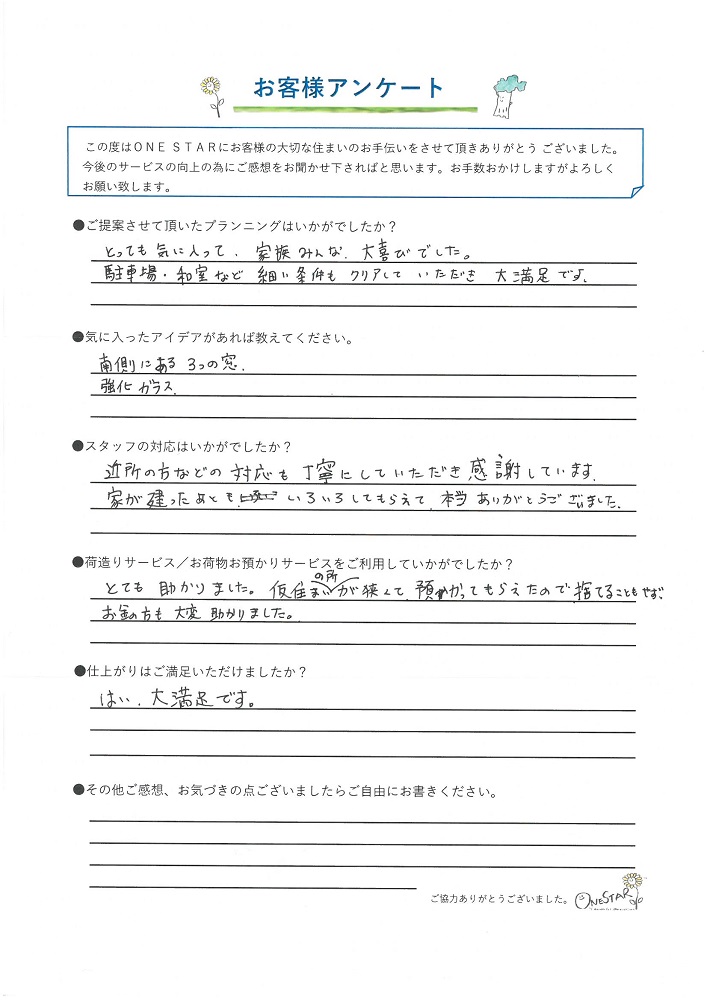 お客様アンケート
この度はONE STARにお客様の大切な住まいのお手伝いをさせて頂きありがとう ございました。
今後のサービスの向上の為にご感想をお聞かせ下さればと思います。お手数おかけしますがよろしく
お願い致します。
●ご提案させて頂いたプランニングはいかがでしたか？
とっても気に入って、家族みんな、大喜びでした。
駐車場・和室など 細い条件も クリアして いただき 大満足です。
●気に入ったアイデアがあれば教えてください。
南側にある 3つの窓、
強化ガラス、
●スタッフの対応はいかがでしたか？
近所の方などの 対応も 丁寧にしていただき 感謝しています。
家が建ったあとも、いろいろしてもらえて、本当 ありがとうございました。
●荷造りサービス／お荷物お預かりサービスをご利用していかがでしたか？
とても 助かりました。仮住まいの所が狭くて、預かってもらえたので 捨てることもせず、
お金の方も 大変 助かりました。
●仕上がりはご満足いただけましたか？
はい、大満足です。
●その他ご感想、お気づきの点ございましたらご自由にお書きください。
ご協力ありがとうございました。 ONESTAR